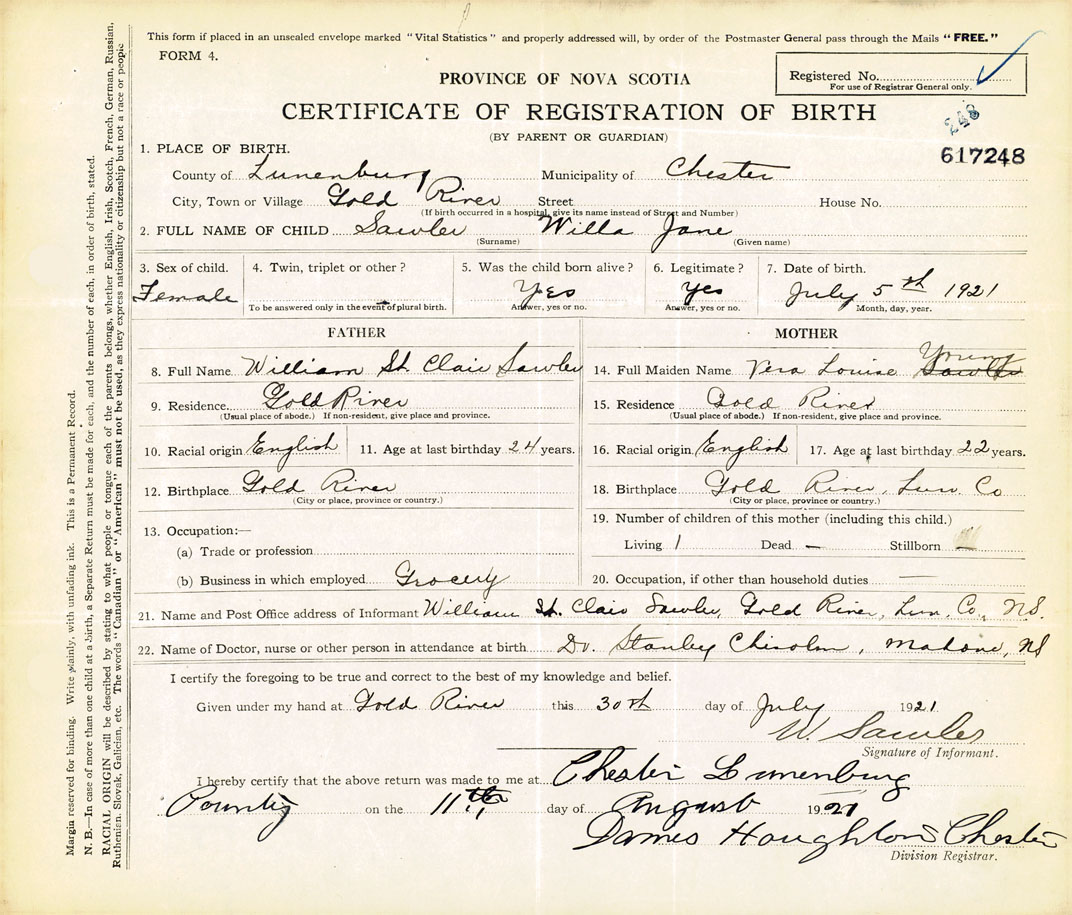 This form if placed in an unsealed envelope marked "Vital Statistics" and properly addressed will, by order of the Postmaster General pass through the Mails "FREE."
FORM 4.
Registered No.
For use of Registrar General only.
PROVINCE OF NOVA SCOTIA
CERTIFICATE OF REGISTRATION OF BIRTH
(BY PARENT OR GUARDIAN)
248
617248
1. PLACE OF BIRTH.
County of Lunenburg Municipality of Chester
City, Town or Village Gold River Street House No.
(If birth occurred in a hospital, give its name instead of Street and Number)
2. FULL NAME OF CHILD Sawler Willa Jane
(Surname) (Given name)
3. Sex of child. 4. Twin, triplet or other? 5. Was the child born alive? 6. Legitimate? 7. Date of birth.
Female Yes Yes July 5th 1921
To be answered only in the event of plural birth. Answer, yes or no. Answer, yes or no. Month, day, year.
FATHER
8. Full Name William St. Clair Sawler
9. Residence Gold River
(Usual place of abode.) If non-resident, give place and province.
10. Racial origin English 11. Age at last birthday 24 years.
12. Birthplace Gold River
(City or place, province or country.)
13. Occupation:—
(a) Trade or profession
(b) Business in which employed Grocery
MOTHER
14. Full Maiden Name Vera Louise Young Sawler
15. Residence Gold River
(Usual place of abode.) If non-resident, give place and province.
16. Racial origin English 17. Age at last birthday 22 years.
18. Birthplace Gold River, Lun. Co
(City or place, province or country.)
19. Number of children of this mother (including this child.)
Living 1 Dead — Stillborn —
20. Occupation, if other than household duties —
21. Name and Post Office address of Informant William St. Clair Sawler, Gold River, Lun. Co., N.S.
22. Name of Doctor, nurse or other person in attendance at birth Dr. Stanley Chisolm, Mahone, NS
I certify the foregoing to be true and correct to the best of my knowledge and belief.
Given under my hand at Gold River this 30th day of July 1921.
W. Sawler
Signature of Informant.
I hereby certify that the above return was made to me at Chester Lunenburg
County on the 11th day of August 1921
James Houghton Chester
Division Registrar.
Margin reserved for binding. Write plainly, with unfading ink. This is a Permanent Record.
N. B.—In case of more than one child at a birth, a Separate Return must be made for each, and the number of each, in order of birth, stated.
RACIAL ORIGIN will be described by stating to what people or tongue each of the parents belongs, whether English, Irish, Scotch, French, German, Russian,
Ruthenian, Slovak, Galician, etc. The words "Canadian" or "American" must not be used, as they express nationality or citizenship but not a race or people